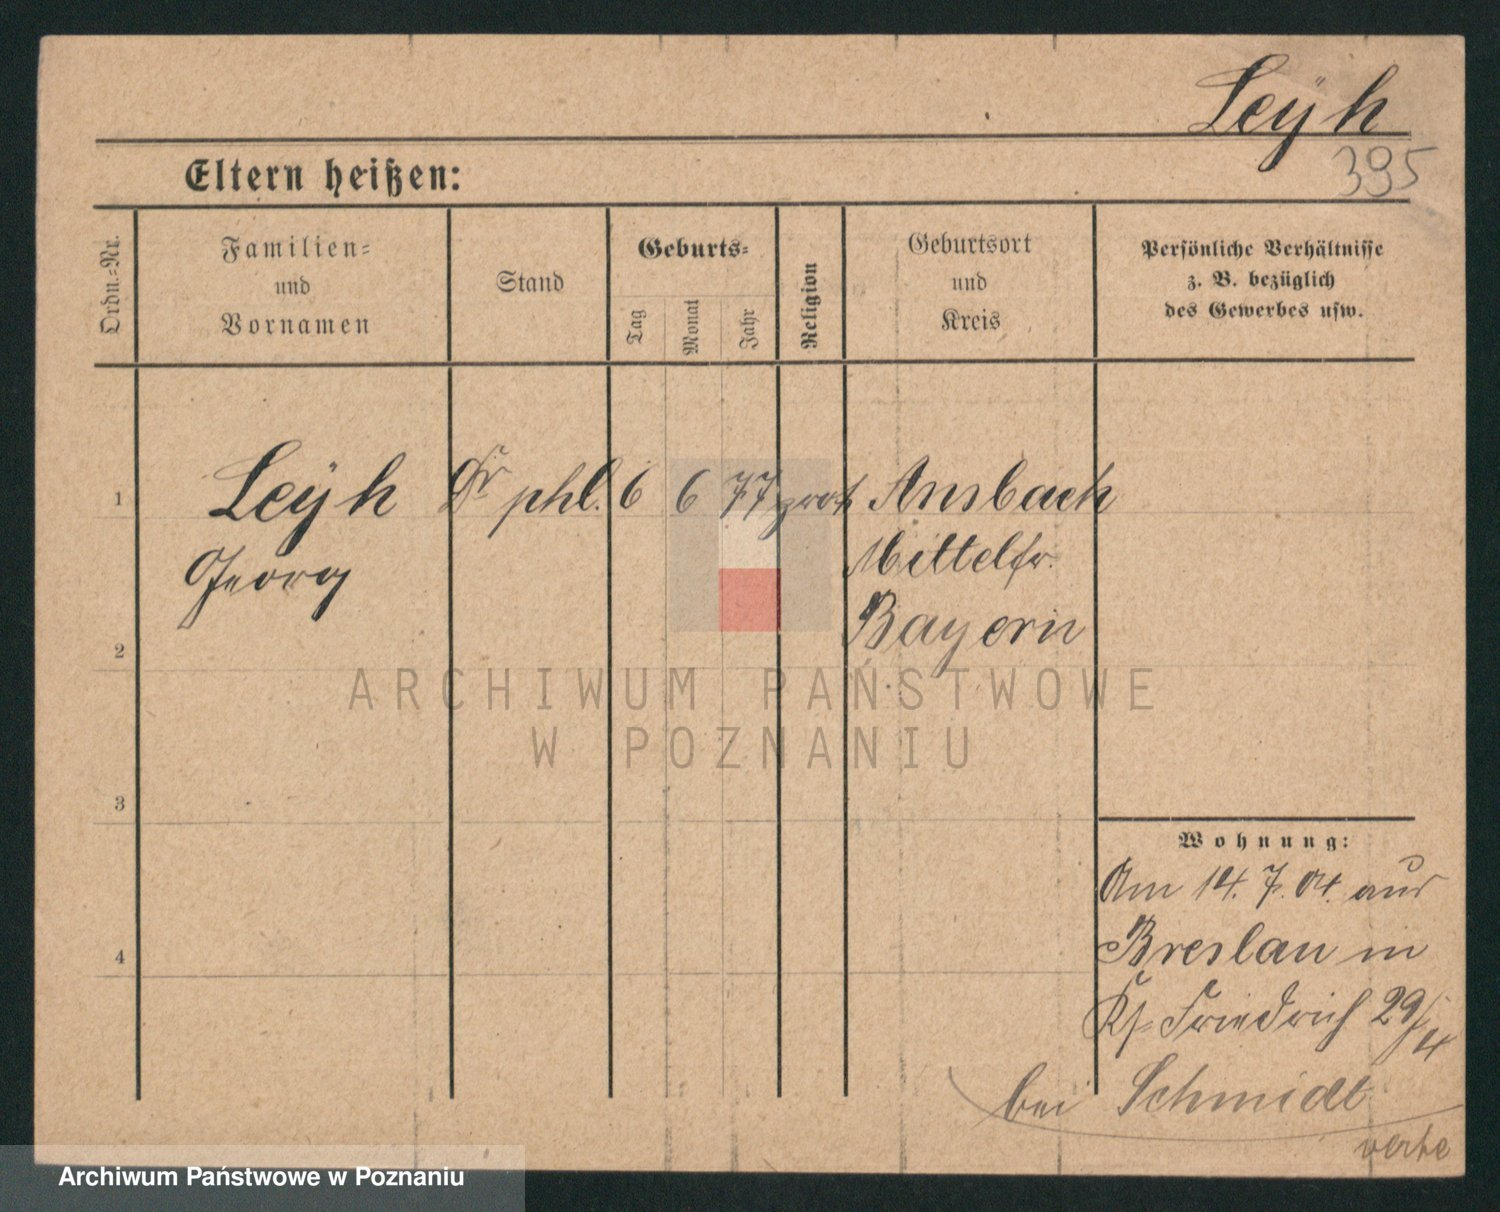 Leÿh
395
Eltern heißen:
Ordn.-Nr.
Familien-
und
Vornamen
Stand
Geburts-
Tag
Monat
Jahr
Religion
Geburtsort
und
Kreis
Persönliche Verhältnisse
z. B. bezüglich
des Gewerbes usw.
1
Leÿh
Georg
Dr phl.
6
6
77
prot
Ansbach
Mittelfr.
Bayern
2
3
4
Wohnung:
Am 14. 7. 04. aus
Breslau in
Ks. Friedrich 29/4
bei Schmidt
ARCHIWUM PAŃSTWOWE
W POZNANIU
Archiwum Państwowe w Poznaniu